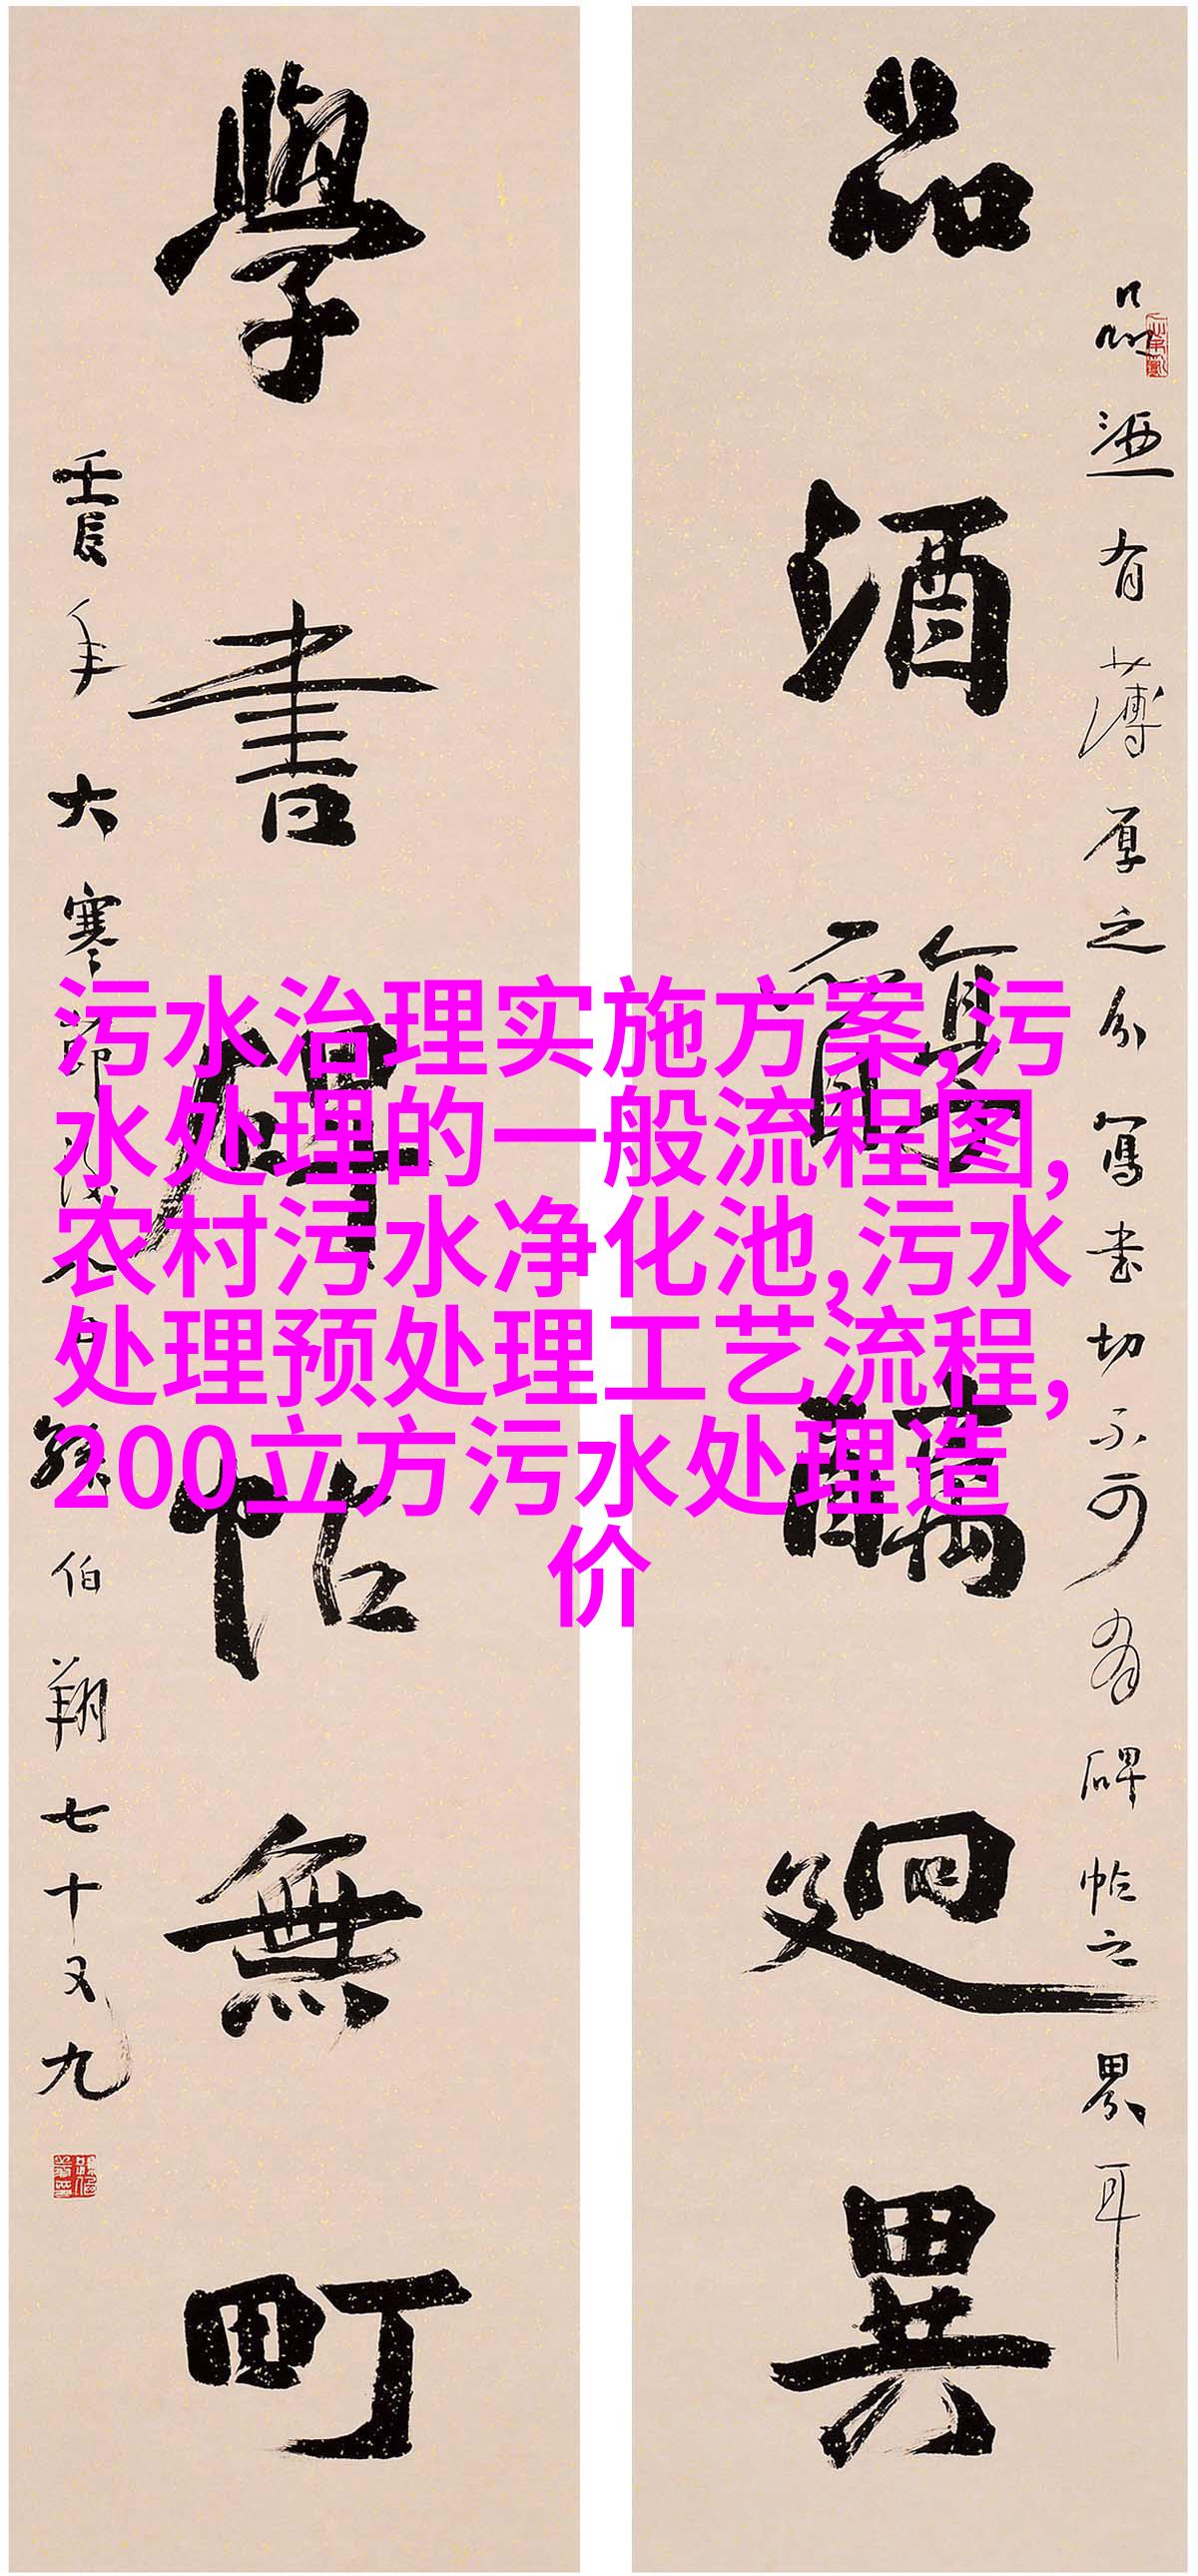 品酒有薄厚之分寫書切不可有碑帖之界耳
品酒醨迥異
學書碑帖無町
壬辰年大寒節日孫伯翔七十又九
污水治理实施方案,污
水处理的一般流程图,
农村污水净化池,污水
处理预处理工艺流程,
200立方污水处理造
价